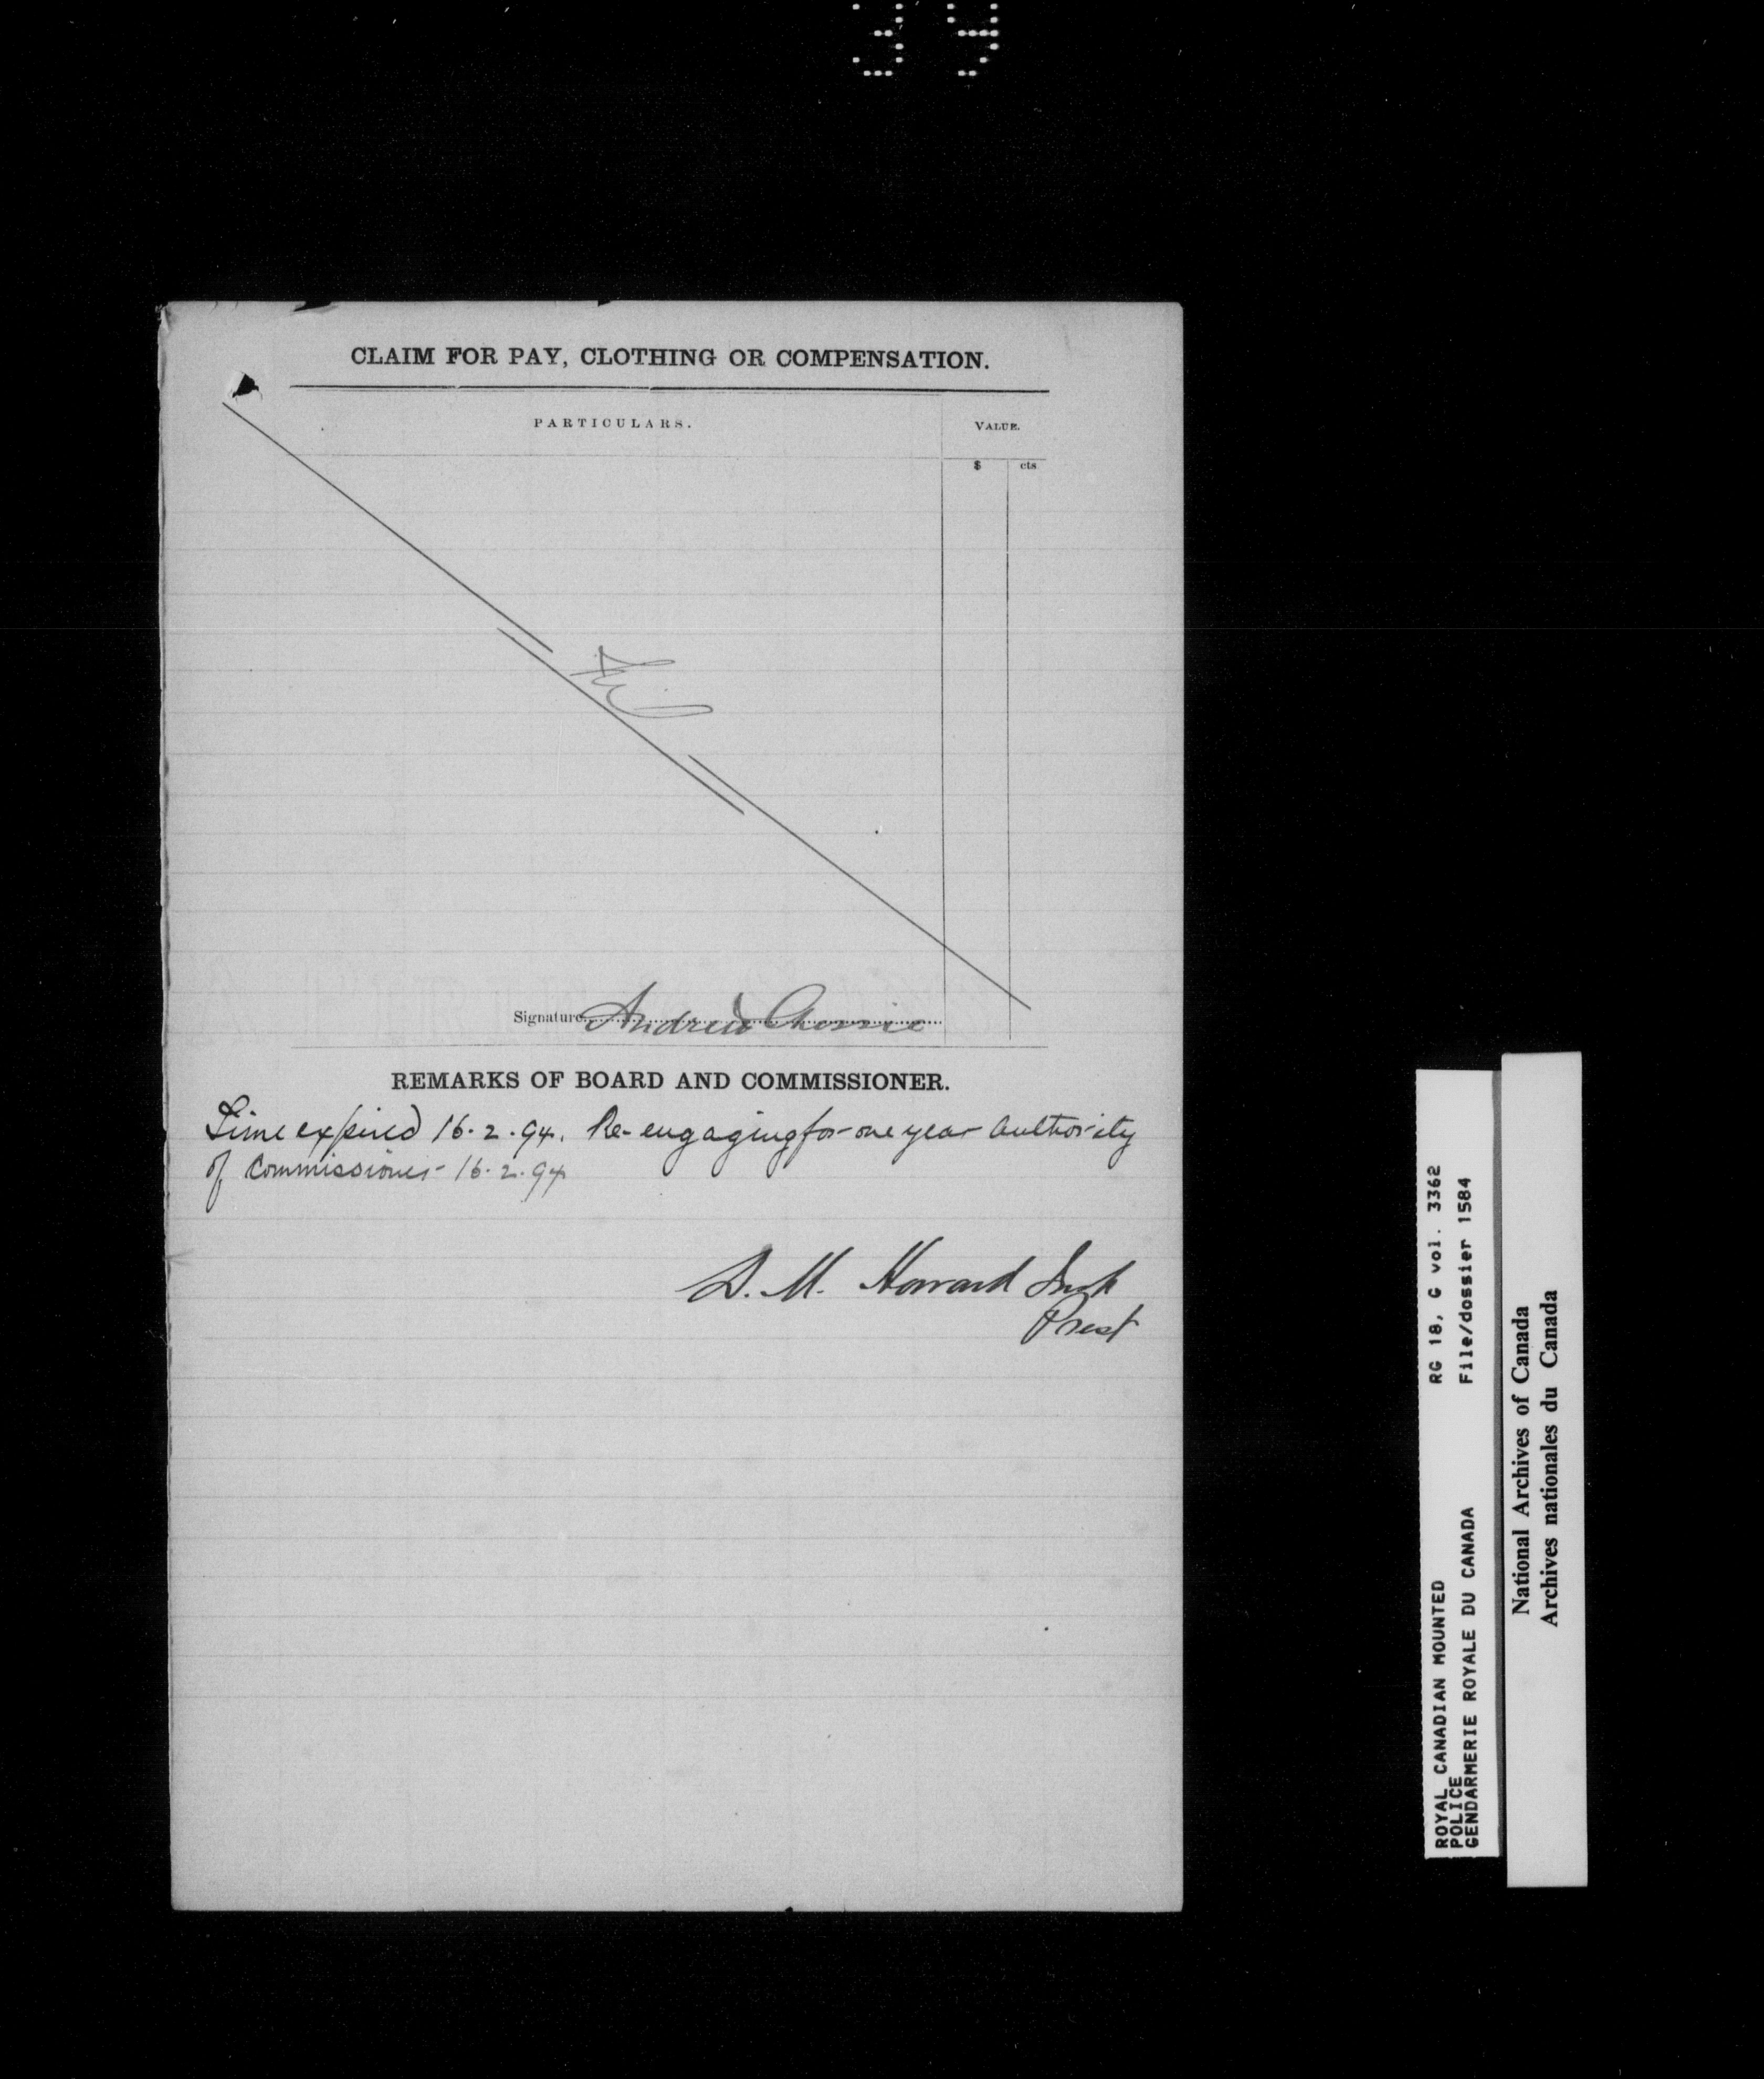 CLAIM FOR PAY, CLOTHING OR COMPENSATION.
PARTICULARS. VALUE.
$ cts
Nil
Signature Andrew
REMARKS OF BOARD AND COMMISSIONER.
Time expired 16.2.94. Re-engaging for one year authority
of Commissioner 16.2.94
D. M. Howard Insp
Prest
RG 18, G vol. 3362
File/dossier 1584
ROYAL CANADIAN MOUNTED
POLICE
GENDARMERIE ROYALE DU CANADA
National Archives of Canada
Archives nationales du Canada